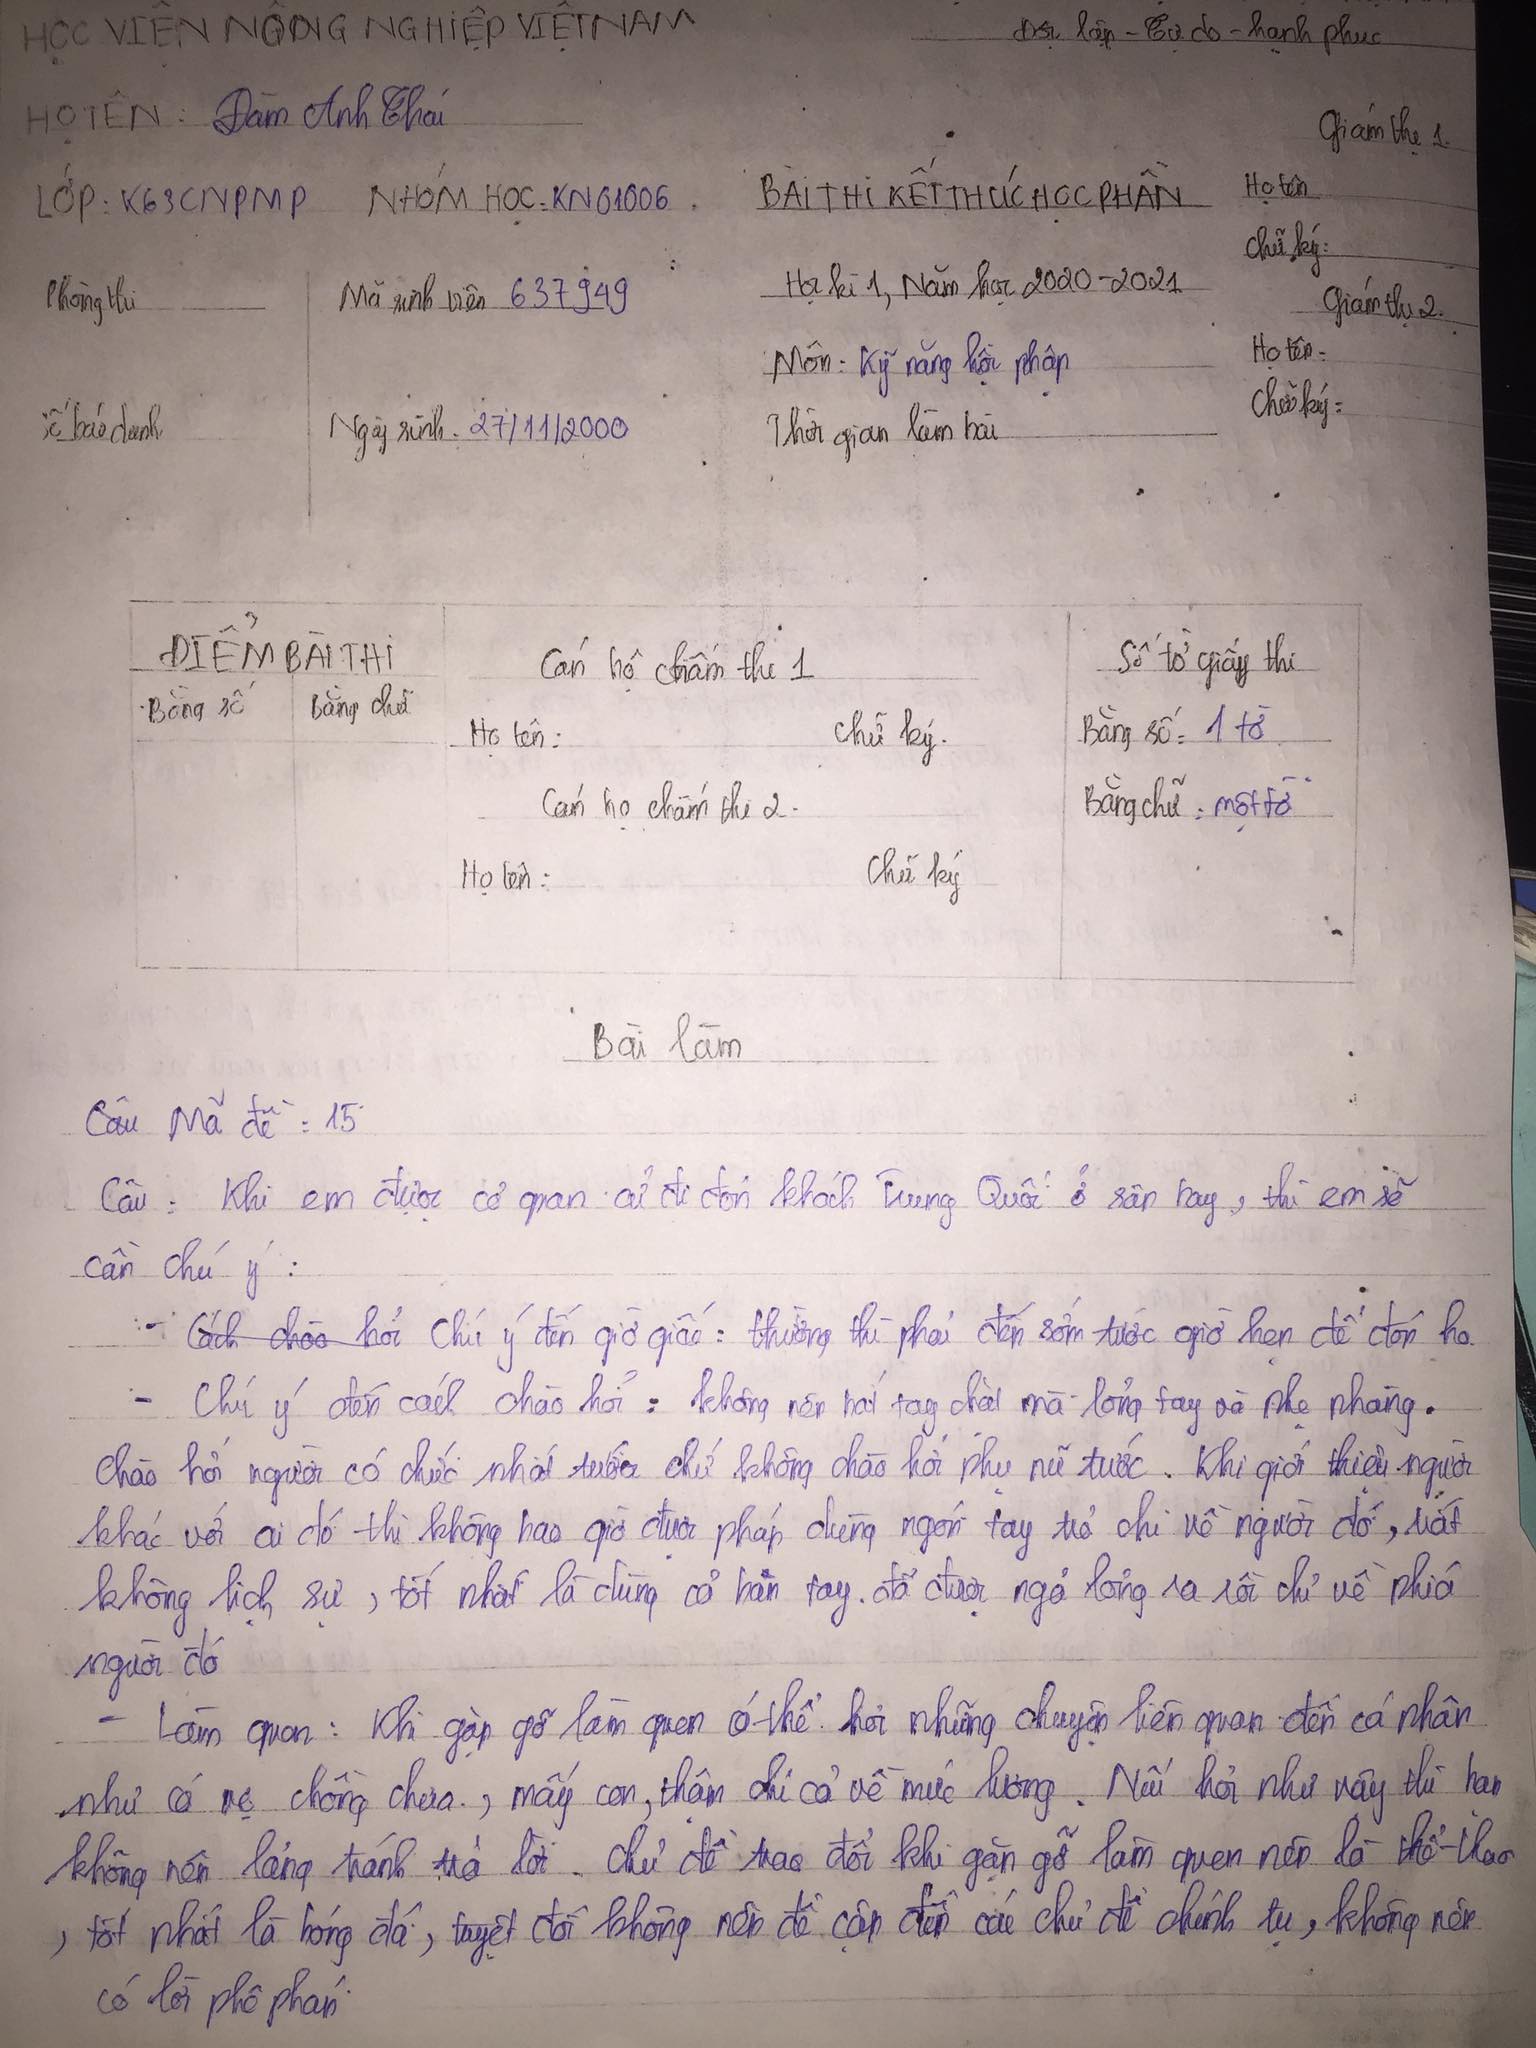 HỌC VIỆN NÔNG NGHIỆP VIỆT NAM
Độc lập - Tự do - hạnh phuc
HỌ TÊN: Đàm Anh Thái
Giám thị 1.
LỚP: K63CNPMP NHÓM HỌC: KN01006
BÀI THI KẾT THÚC HỌC PHẦN
Họ tên
Chữ ký:
Phòng thi
Mã sinh viên 637949
Học kì 1, Năm học 2020-2021
Giám thị 2.
Môn: Kỹ năng hội nhập
Họ tên:
Chữ ký:
Số báo danh
Ngày sinh: 27/11/2000
Thời gian làm bài
ĐIỂM BÀI THI
Cán bộ chấm thi 1
Số tờ giấy thi
Bằng số
Bằng chữ
Họ tên:
Chữ ký.
Bằng số: 1 tờ
Cán bộ chấm thi 2.
Bằng chữ: một tờ
Họ tên:
Chữ ký
Bài làm
Câu Mã đề: 15
Câu: Khi em được cơ quan cử đi đón khách Trung Quốc ở sân bay, thì em sẽ
cần chú ý:
- Cách chào hỏi Chú ý đến giờ giấc: thường thì phải đến sớm trước giờ hẹn để đón họ.
- Chú ý đến cách chào hỏi: không nên bắt tay chặt mà lỏng tay và nhẹ nhàng.
Chào hỏi người có chức nhất trước chứ không chào hỏi phụ nữ trước. Khi giới thiệu người
khác với ai đó thì không bao giờ được phép dùng ngón tay trỏ chỉ về người đó, rất
không lịch sự, tốt nhất là dùng cả bàn tay đã được ngả lỏng ra rồi chỉ về phía
người đó
- Làm quen: Khi gặp gỡ làm quen có thể hỏi những chuyện liên quan đến cá nhân
như có vợ chồng chưa, mấy con, thậm chí cả về mức lương. Nếu hỏi như vậy thì bạn
không nên lảng tránh trả lời. Chủ đề trao đổi khi gặp gỡ làm quen nên là thể thao
, tốt nhất là bóng đá, tuyệt đối không nên đề cập đến các chủ đề chính trị, không nên
có lời phê phán.